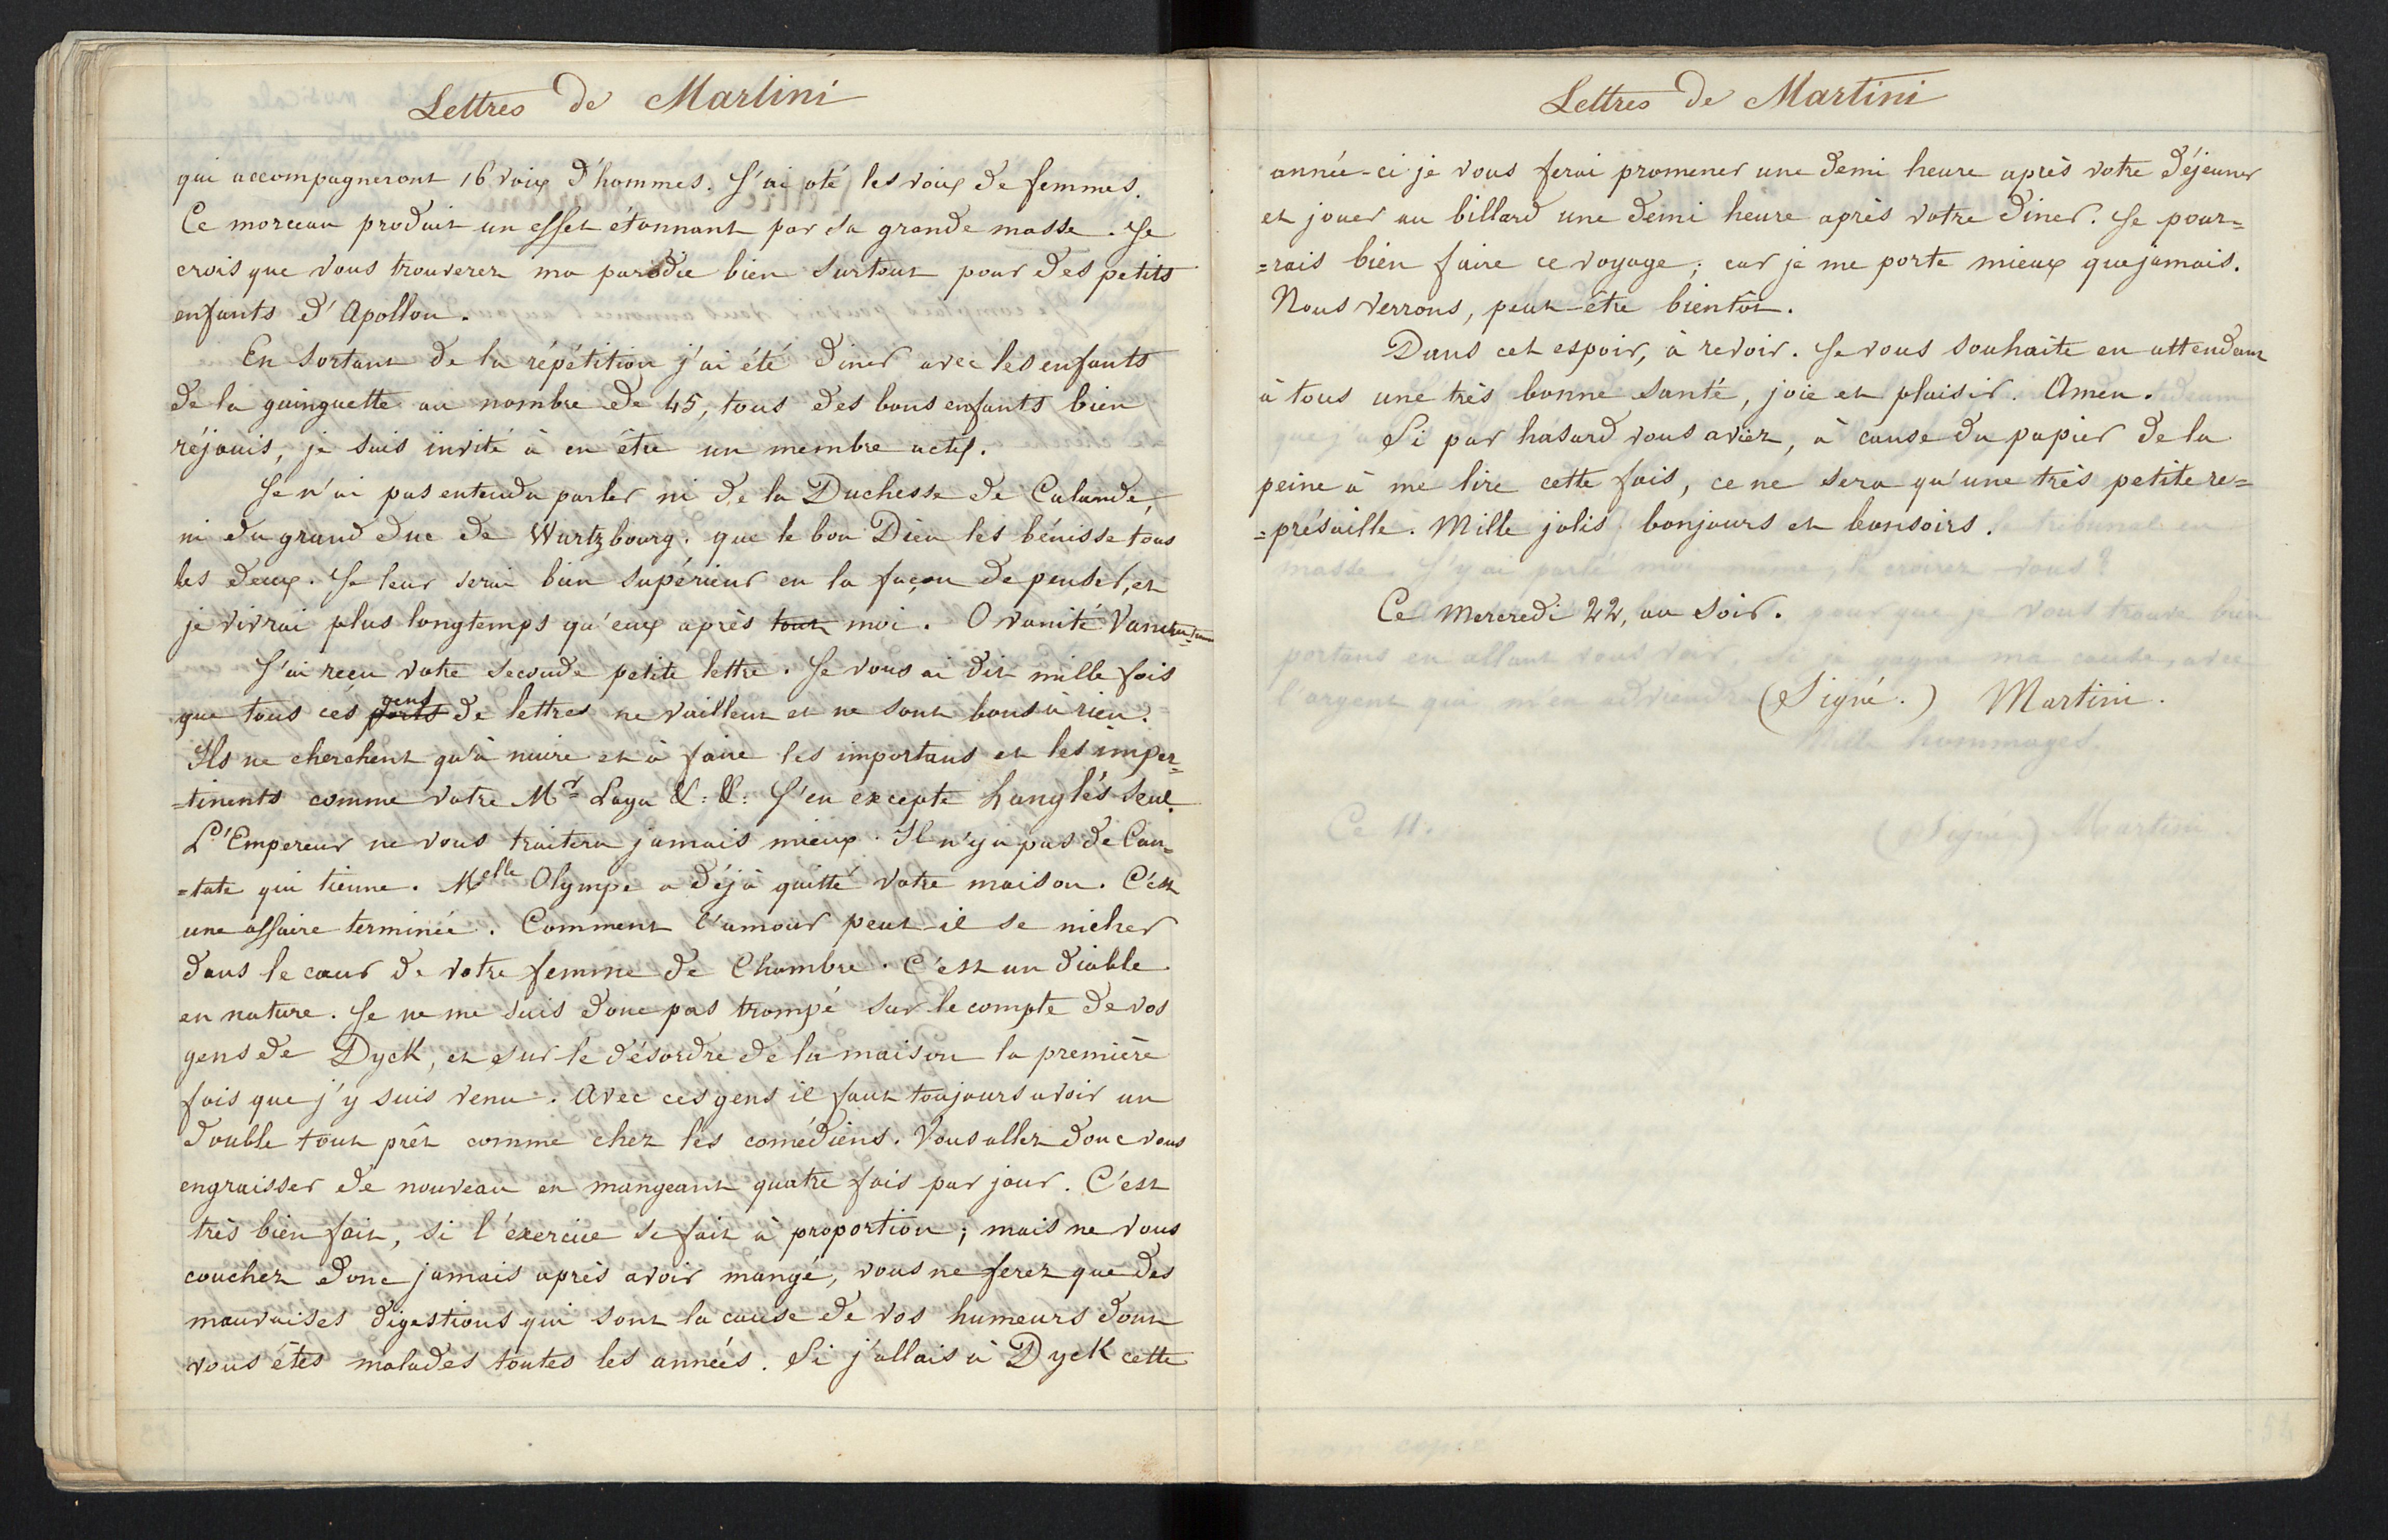 Lettres de Martini
qui accompagneront 16 voix d'hommes. J'ai oté les voix de femmes.
Ce morceau produit un effet étonnant par sa grande masse. Je
crois que vous trouverez ma parodie bien surtout pour des petits
enfants d'Apollon.
En sortant de la répétition j'ai été diner avec les enfants
de la guinguette au nombre de 45, tous des bons enfants bien
réjouis, je suis invité à en être un membre actif.
Je n'ai pas entendu parler ni de la Duchesse de Calande,
ni du grand duc de Wurtzbourg. que le bon Dieu les bénisse tous
les deux. Je leur serai bien supérieur en la façon de penser, et
je vivrai plus longtemps qu'eux après tout moi. O vanité
J'ai reçu votre seconde petite lettre. Je vous ai dit mille fois
que tous ces gens de lettres ne vaillent et ne sont bons à rien.
Ils ne cherchent qu'à nuire et à faire les importans et les imper=
=tinents comme votre Mr Laya &: &: J'en excepte Langlés seul.
L'Empereur ne vous traitera jamais mieux. Il n'y a pas de Can=
=tate qui tienne. Melle Olympe a déjà quitté votre maison. C'est
une affaire terminée. Comment l'amour peut-il se nicher
dans le cœur de votre femme de Chambre. C'est un diable
en nature. Je ne me suis donc pas trompé sur le compte de vos
gens de Dyck, et sur le désordre de la maison la première
fois que j'y suis venu. Avec ces gens il faut toujours avoir un
double tout prêt comme chez les comédiens. Vous allez donc vous
engraisser de nouveau en mangeant quatre fois par jour. C'est
très bien fait, si l'exercice se fait à proportion; mais ne vous
couchez donc jamais après avoir mangé, vous ne ferez que des
mauvaises digestions qui sont la cause de vos humeurs dont
vous êtes malades toutes les années. Si j'allais à Dyck cette
Lettres de Martini
année-ci je vous ferai promener une demi heure après votre déjeuner
et jouer au billard une demi heure après votre diner. Je pour=
=rais bien faire ce voyage; car je me porte mieux que jamais.
Nous verrons, peut-être bientôt.
Dans cet espoir, à revoir. Je vous souhaite en attendant
à tous une très bonne santé, joie et plaisir. Amen.
Si par hasard vous aviez, à cause du papier de la
peine à me lire cette fois, ce ne sera qu'une très petite re=
=présaille. Mille jolis bonjours et bonsoirs.
Ce Mercredi 22, au soir.
(Signé.) Martini.